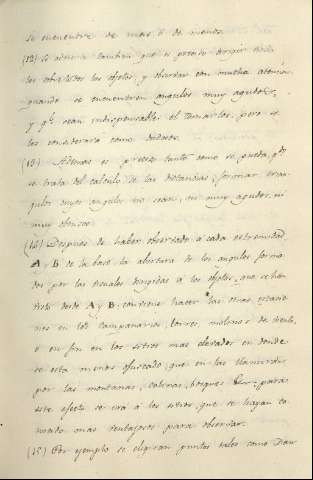 se encuentre de mas, ó de menos.
(12) Se advierte tambien que es preciso dirigir
los objetos, y observar con mucha atencion,
quando se encuentren angulos muy agudos,
y q.e sean indispensables el tomarlos, pero se
los considerará como dudosos.
(13) Ademas es preciso tanto como se pueda, q.do
se trata del calculo de las distancias, formar trian-
gulos cuyos angulos no sean, ni muy agudos, ni
muy obtusos.
(14) Despues de haber observado á cada extremidad
A y B de la base la abertura de los angulos forma-
dos por las visuales dirigidas á los objetos, que se han
visto desde A y B conviene hacer las otras estacio-
nes en los campanarios, torres, molinos de viento,
ó en fin en los sitios mas elevados en donde
se esta menos ofuscado, que en las llanuras
por las montañas, colinas, bosques &c., para
este efecto se irá á los sitios, que se hayan
mas ventajosos para observar.
(15) Por ejemplo se elijiran puntos tales como D